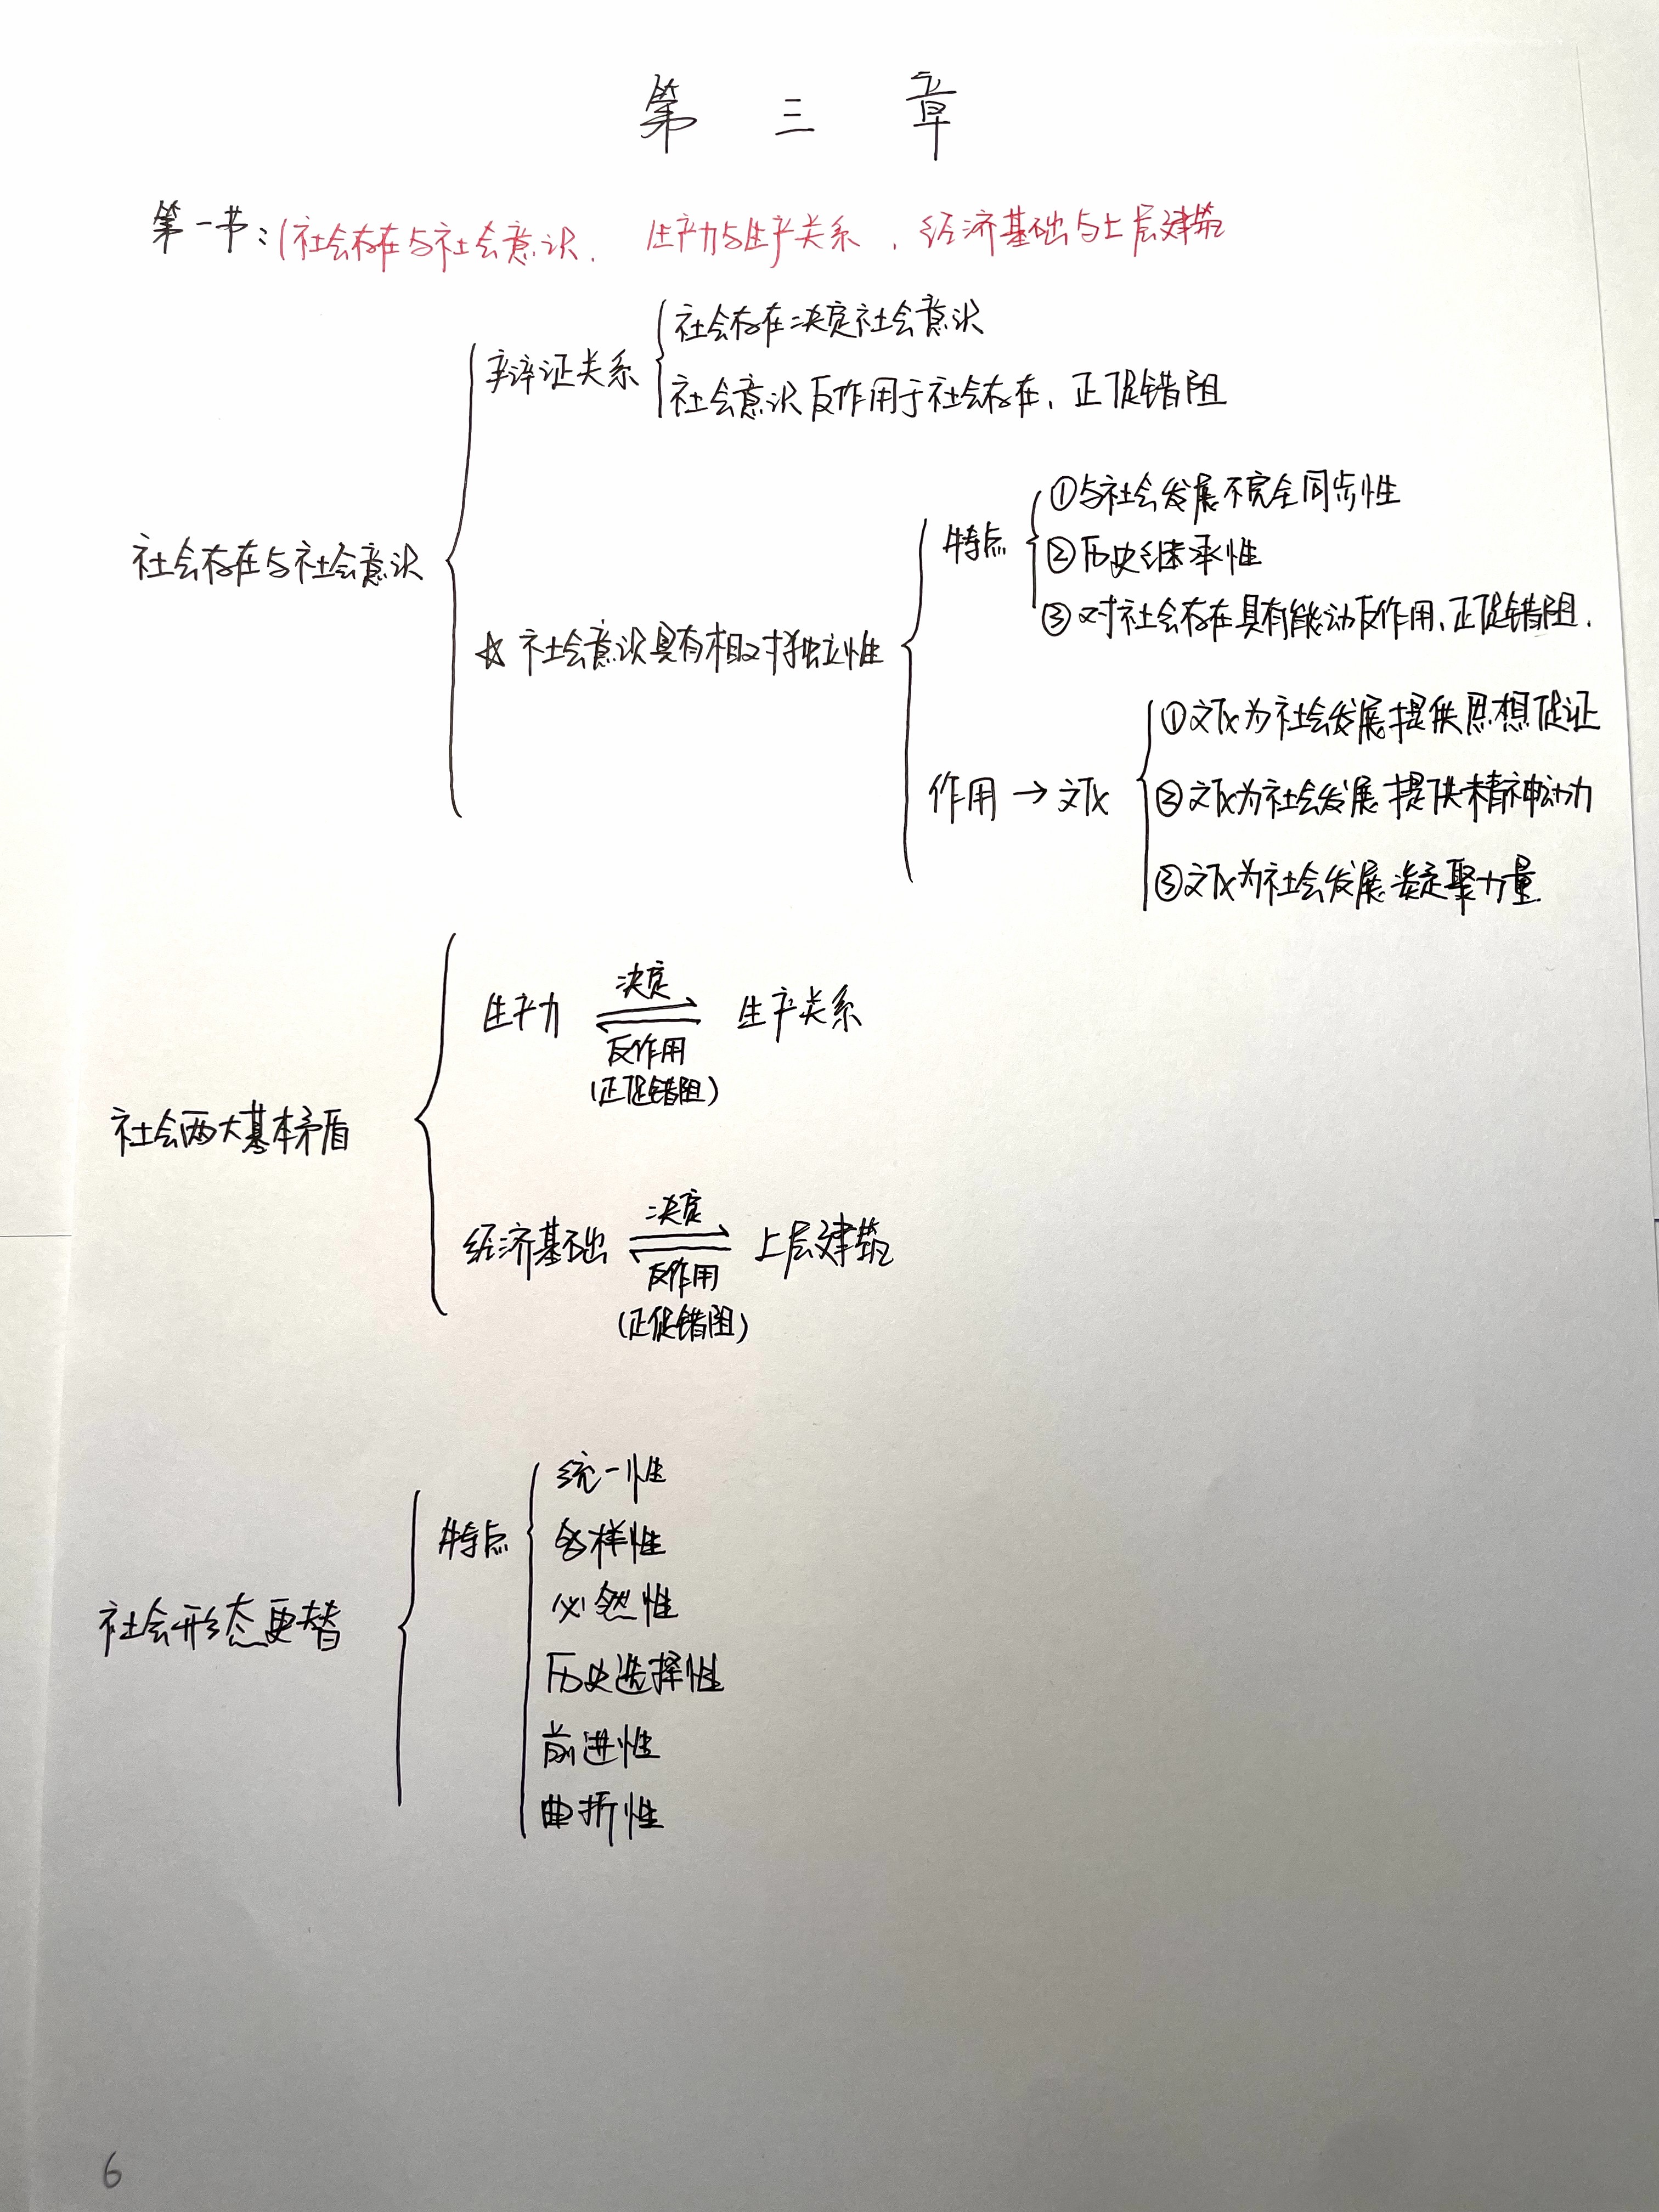 第 三 章
第一节：(社会存在与社会意识、生产力与生产关系、经济基础与上层建筑
社会存在与社会意识
辩证关系
社会存在决定社会意识
社会意识反作用于社会存在、正促错阻
☆ 社会意识具有相对独立性
特点
①与社会发展不完全同步性
②历史继承性
③对社会存在具有能动反作用、正促错阻.
作用 → 文化
①文化为社会发展提供思想保证
②文化为社会发展提供精神动力
③文化为社会发展凝聚力量
社会两大基本矛盾
生产力 决定 生产关系
反作用
(正促错阻)
经济基础 决定 上层建筑
反作用
(正促错阻)
社会形态更替
特点
统一性
多样性
必然性
历史选择性
前进性
曲折性
6